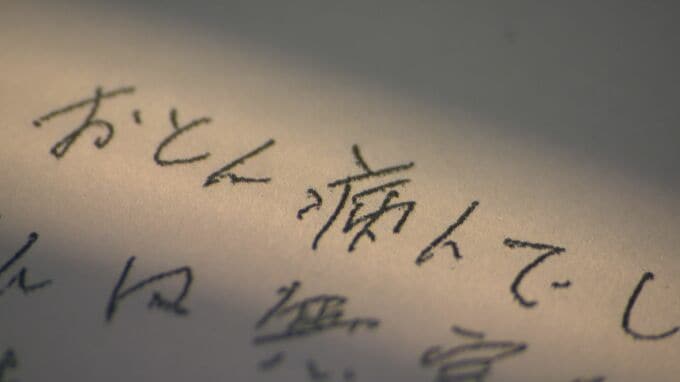 おとん病んでし
んは無実